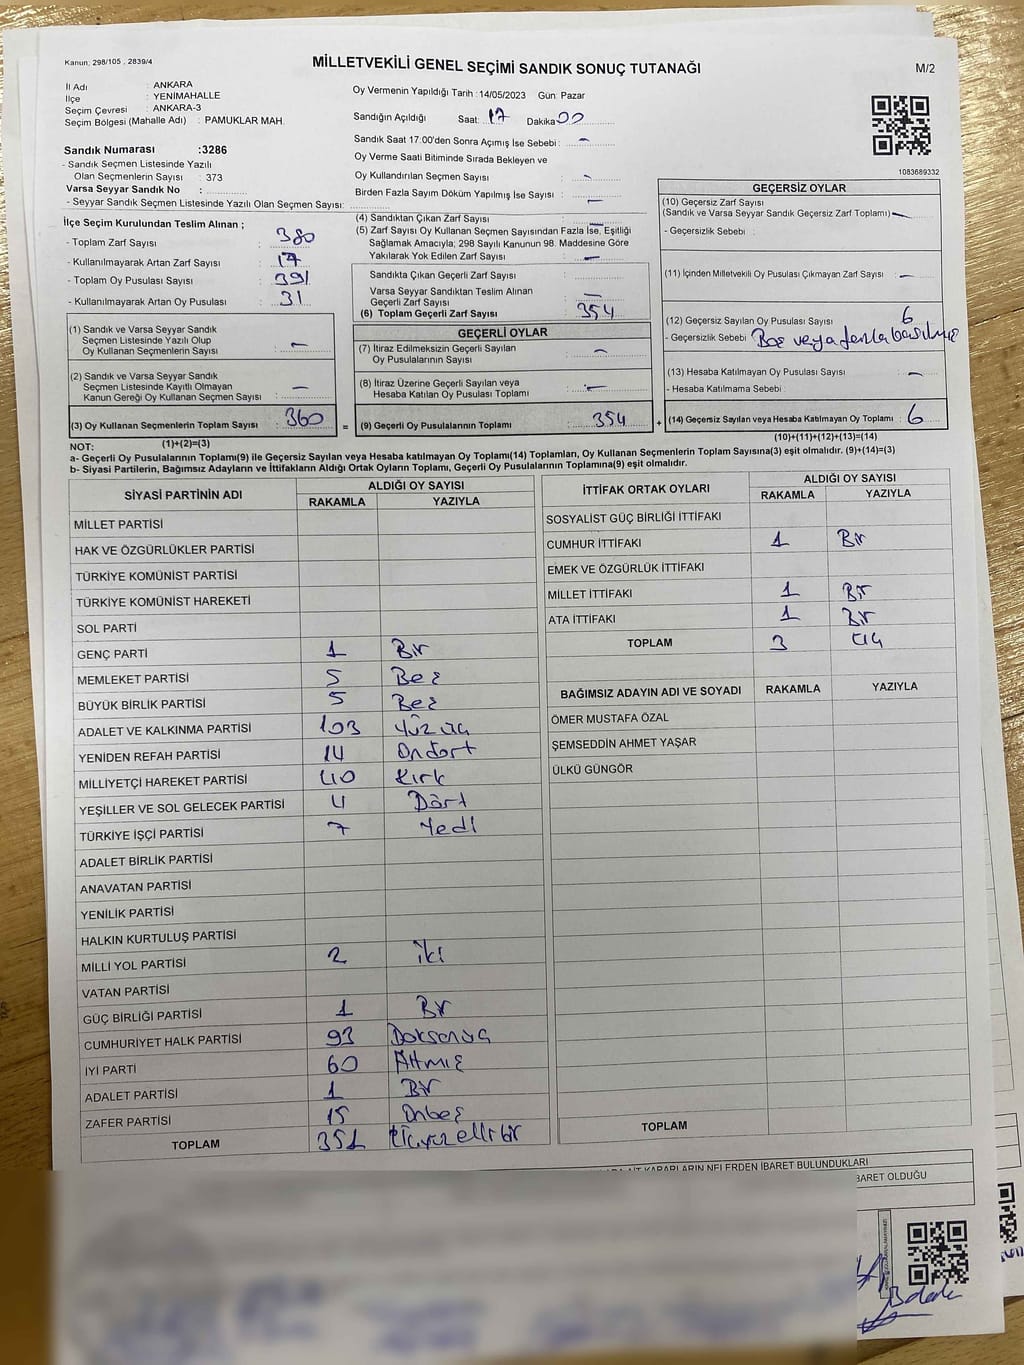 Kanun, 298/105 , 2839/4
MİLLETVEKİLİ GENEL SEÇİMİ SANDIK SONUÇ TUTANAĞI
M/2
İl Adı : ANKARA
İlçe : YENİMAHALLE
Seçim Çevresi : ANKARA-3
Seçim Bölgesi (Mahalle Adı) : PAMUKLAR MAH.
Sandık Numarası :3286
- Sandık Seçmen Listesinde Yazılı
Olan Seçmenlerin Sayısı : 373
Varsa Seyyar Sandık No :
- Seyyar Sandık Seçmen Listesinde Yazılı Olan Seçmen Sayısı:
Oy Vermenin Yapıldığı Tarih :14/05/2023 Gün: Pazar
Sandığın Açıldığı Saat: 17 Dakika 00
Sandık Saat 17:00'den Sonra Açımış İse Sebebi : -
Oy Verme Saati Bitiminde Sırada Bekleyen ve
Oy Kullandırılan Seçmen Sayısı : -
Birden Fazla Sayım Döküm Yapılmış İse Sayısı : -
1083689332
İlçe Seçim Kurulundan Teslim Alınan ;
- Toplam Zarf Sayısı : 380
- Kullanılmayarak Artan Zarf Sayısı : 17
- Toplam Oy Pusulası Sayısı : 391
- Kullanılmayarak Artan Oy Pusulası : 31
(1) Sandık ve Varsa Seyyar Sandık
Seçmen Listesinde Yazılı Olup
Oy Kullanan Seçmenlerin Sayısı : -
(2) Sandık ve Varsa Seyyar Sandık
Seçmen Listesinde Kayıtlı Olmayan
Kanun Gereği Oy Kullanan Seçmen Sayısı : -
(3) Oy Kullanan Seçmenlerin Toplam Sayısı : 360
(1)+(2)=(3)
(4) Sandıktan Çıkan Zarf Sayısı : -
(5) Zarf Sayısı Oy Kullanan Seçmen Sayısından Fazla İse, Eşitliği
Sağlamak Amacıyla; 298 Sayılı Kanunun 98. Maddesine Göre
Yakılarak Yok Edilen Zarf Sayısı : -
Sandıkta Çıkan Geçerli Zarf Sayısı :
Varsa Seyyar Sandıktan Teslim Alınan
Geçerli Zarf Sayısı : -
(6) Toplam Geçerli Zarf Sayısı : 354
GEÇERLİ OYLAR
(7) İtiraz Edilmeksizin Geçerli Sayılan
Oy Pusulalarının Sayısı : -
(8) İtiraz Üzerine Geçerli Sayılan veya
Hesaba Katılan Oy Pusulası Toplamı : -
= (9) Geçerli Oy Pusulalarının Toplamı : 354
GEÇERSİZ OYLAR
(10) Geçersiz Zarf Sayısı
(Sandık ve Varsa Seyyar Sandık Geçersiz Zarf Toplamı) : -
- Geçersizlik Sebebi :
(11) İçinden Milletvekili Oy Pusulası Çıkmayan Zarf Sayısı : -
(12) Geçersiz Sayılan Oy Pusulası Sayısı : 6
- Geçersizlik Sebebi : Boş veya fazla basılmış
(13) Hesaba Katılmayan Oy Pusulası Sayısı : -
- Hesaba Katılmama Sebebi :
+ (14) Geçersiz Sayılan veya Hesaba Katılmayan Oy Toplamı : 6
(10)+(11)+(12)+(13)=(14)
NOT:
a- Geçerli Oy Pusulasının Toplamı(9) ile Geçersiz Sayılan veya Hesaba katılmayan Oy Toplamı(14) Toplamları, Oy Kullanan Seçmenlerin Toplam Sayısına(3) eşit olmalıdır. (9)+(14)=(3)
b- Siyasi Partilerin, Bağımsız Adayların ve İttifakların Aldığı Ortak Oyların Toplamı, Geçerli Oy Pusulalarının Toplamına(9) eşit olmalıdır.
SİYASİ PARTİNİN ADI ALDIĞI OY SAYISI
RAKAMLA YAZIYLA
MİLLET PARTİSİ
HAK VE ÖZGÜRLÜKLER PARTİSİ
TÜRKİYE KOMÜNİST PARTİSİ
TÜRKİYE KOMÜNİST HAREKETİ
SOL PARTİ
GENÇ PARTİ 1 Bir
MEMLEKET PARTİSİ 5 Beş
BÜYÜK BİRLİK PARTİSİ 5 Beş
ADALET VE KALKINMA PARTİSİ 103 Yüzüç
YENİDEN REFAH PARTİSİ 14 Ondört
MİLLİYETÇİ HAREKET PARTİSİ 40 Kırk
YEŞİLLER VE SOL GELECEK PARTİSİ 4 Dört
TÜRKİYE İŞÇİ PARTİSİ 7 Yedi
ADALET BİRLİK PARTİSİ
ANAVATAN PARTİSİ
YENİLİK PARTİSİ
HALKIN KURTULUŞ PARTİSİ
MİLLİ YOL PARTİSİ 2 İki
VATAN PARTİSİ
GÜÇ BİRLİĞİ PARTİSİ 1 Bir
CUMHURİYET HALK PARTİSİ 93 Doksanüç
İYİ PARTİ 60 Altmış
ADALET PARTİSİ 1 Bir
ZAFER PARTİSİ 15 Onbeş
TOPLAM 351 Üçyüzellibir
İTTİFAK ORTAK OYLARI ALDIĞI OY SAYISI
RAKAMLA YAZIYLA
SOSYALİST GÜÇ BİRLİĞİ İTTİFAKI
CUMHUR İTTİFAKI 1 Bir
EMEK VE ÖZGÜRLÜK İTTİFAKI
MİLLET İTTİFAKI 1 Bir
ATA İTTİFAKI 1 Bir
TOPLAM 3 Üç
BAĞIMSIZ ADAYIN ADI VE SOYADI RAKAMLA YAZIYLA
ÖMER MUSTAFA ÖZAL
ŞEMSEDDİN AHMET YAŞAR
ÜLKÜ GÜNGÖR
TOPLAM
KARARLARIN NELERDEN İBARET BULUNDUKLARI
BARET OLDUĞU